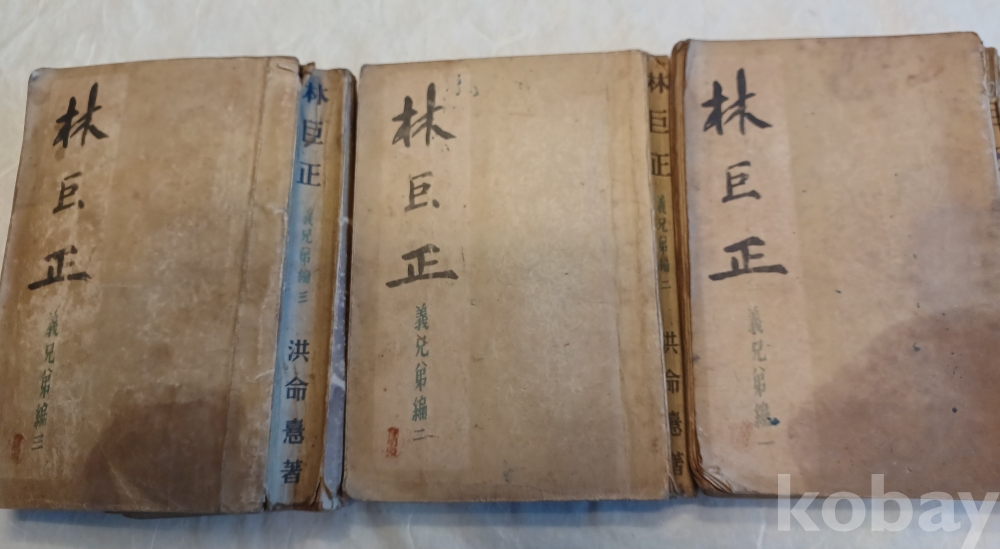 林巨正
義兄弟編三
林巨正 義兄弟編三 洪命憙著
林巨正
義兄弟編二
林巨正 義兄弟編二 洪命憙著
林巨正
義兄弟編一
kobay